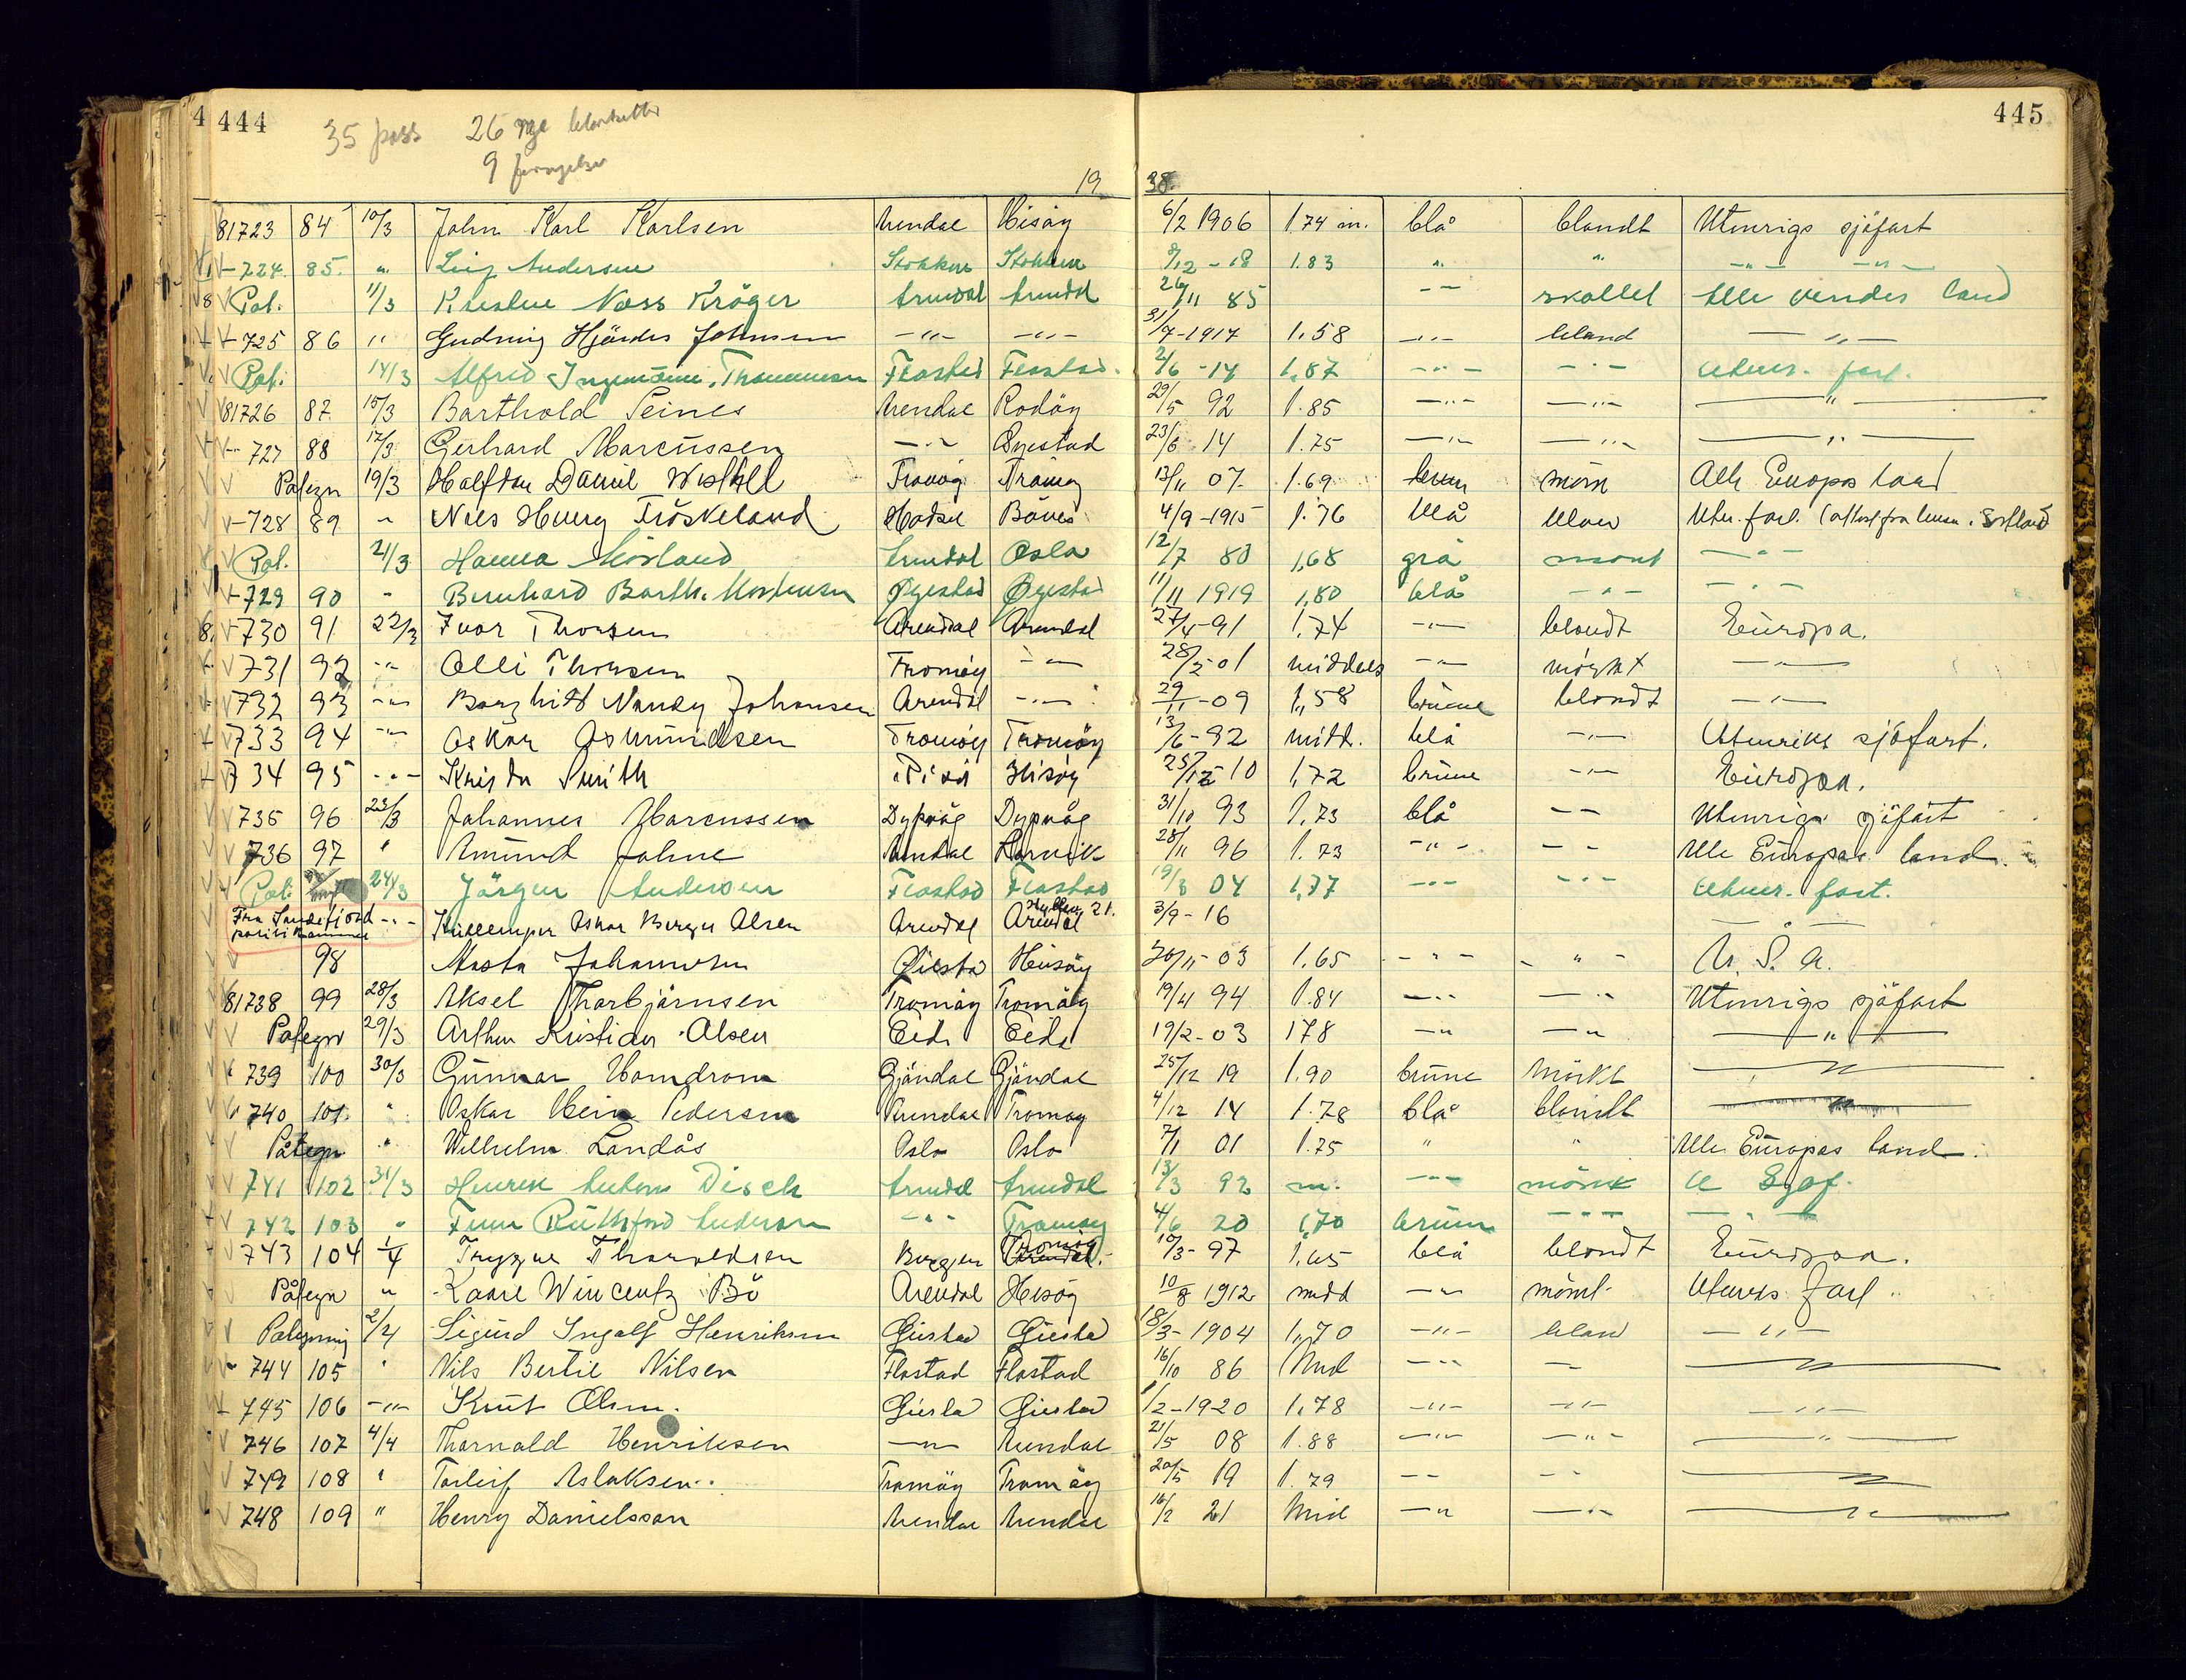 4 444 445
35 pass 26 nye blanketter
9 fornyelser
19 38.
81723 84 10/3 John Karl Karlsen Arendal Hisöy 6/2 1906 1.74 m. blå blondt Utenrigs sjöfart
-724. 85. " Leif Andersen Stokken Stokken 9/12 - 18 1.83 " " -"- -"-
Pot. 11/3 Kristine Næss Kröger Arendal Arendal 26/11 85 -- skallet Alle verdes land
-725 86 " Gudrun Hjördis Johnsen -"- -"- 31/7-1917 1.58 -"- blond -"-
Pot. 14/3 Alfred Ingemann Thommesen Flosta Flostad. 2/6 -14 1,87 -"- -"- Utenr. fart.
81726 87 15/3 Barthold Seines Arendal Rodöy 29/5 92 1.85 -"- -"- -"-
-727 88 17/3 Gerhard Marcussen -"- Øyestad 23/6 14 1.75 -"- -"- -"-
Påtegn 19/3 Halfdan Daniel Tromöy Tromöy 13/11 07 1.69 brun mörk Alle Europas land
-728 89 " Nils Henry Tröskeland Hadsel Bönes 4/9-1915 1.76 blå blond Uten. fart.
Pot. 21/3 Hanna Arendal Oslo 12/7 80 1,68 grå mörkt -"-
-729 90 - Bernhard Barth. Mortensen Øyestad Øyestad 11/11 1919 1,80 blå -"- -"-
-730 91 22/3 Ivar Thorsen Arendal Arendal 27/4-91 1,74 -"- blondt Europa.
731 92 -"- Olli Thorsen Tromöy -"- 28/2-01 middels -"- mörkt -"-
732 93 -"- Borghild Nancy Johansen Arendal -"- 29/11-09 1,58 brune blondt -"-
733 94 -"- Oskar Osmundsen Tromöy Tromöy 13/6-92 midd. blå -"- Utenriks sjöfart.
734 95 -"- Smith Hisöy 25/12-10 1,72 brune -"- Europa.
735 96 23/3 Johannes Marcussen Dypvåg Dypvåg 31/10 93 1,73 blå -- Utenrigs sjöfart
736 97 " Amund Johne Arendal 28/11 96 1.73 -"- -- Alle Europas land.
Pot. 24/3 Jörgen Andersen Flostad Flostad 19/8 04 1,77 -"- -"- Utenr. fart.
Fra Sandefjord -"- Oskar Birger Olsen Arendal Arendal 21. 3/9-16
politikammer
98 Aasta Johannesen Øiesta Hisöy 30/11-03 1,65 -"- -"- U.S.A.
81738 99 28/3 Aksel Thorbjörnsen Tromöy Tromöy 19/4 94 1.84 -"- -"- Utenrigs sjöfart
Påtegn 29/3 Arthur Kristian Olsen Eide Eide 19/2-03 178 -"- -"- -"-
739 100 30/3 Gunnar Homdrom Gjöndal Gjöndal 25/12 19 1.90 brune mörkt -"-
740 101. " Oskar Hein Pedersen Arendal Tromöy 4/12 14 1.78 blå blondt -"-
Påtegn " Wilhelm Landås Oslo Oslo 7/1 01 1.75 " " Alle Europas land.
741 102 31/3 Henrik Anton Disch Arendal Arendal 13/3 92 m. -"- mörk U Sjøf.
742 103 " Finn Ruthsford Anderson -"- Tromöy 4/6 20 1,70 brun -"- -"-
743 104 1/4 Trygve Thoroldsen Bergen Tromöy 10/3-97 1,65 blå blondt Europa.
Påtegn " Kaare Wincentz Bö Arendal Hisöy 10/8 1912 midd -"- mörkt Utenrs fart.
Påtegning 2/4 Sigurd Ingolf Henriksen Øiestad Øiestad 18/3-1904 1,70 -"- blond -"-
744 105 " Nils Bertil Nilsen Flostad Flostad 16/10 86 Mid -"- - -"-
745 106 -"- Knut Olsen. Øiestad Øiestad 1/2-1920 1,78 -"- -"- -"-
746 107 4/4 Thorvald Henriksen -"- Arendal 21/5 08 1.88 -"- -"- -"-
747 108 " Torleif Aslaksen. Tromöy Tromöy 20/5 19 1.79 -- -"- -"-
748 109 " Henry Danielsson Arendal Arendal 16/2 21 Mid -"- -"- -"-